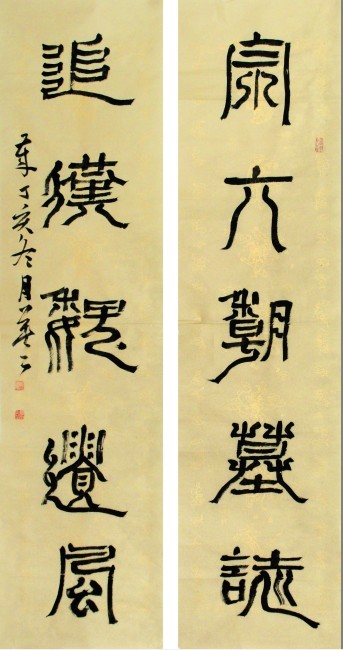 宗六朝墓誌
追漢魏遺風
丁亥冬月